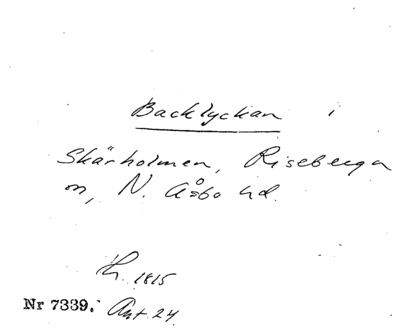 Backlyckan i
Skärholmen, Riseberga
sn, N. Åsbo hd.
Lh. 1815
Nr 7339. Ant. 24